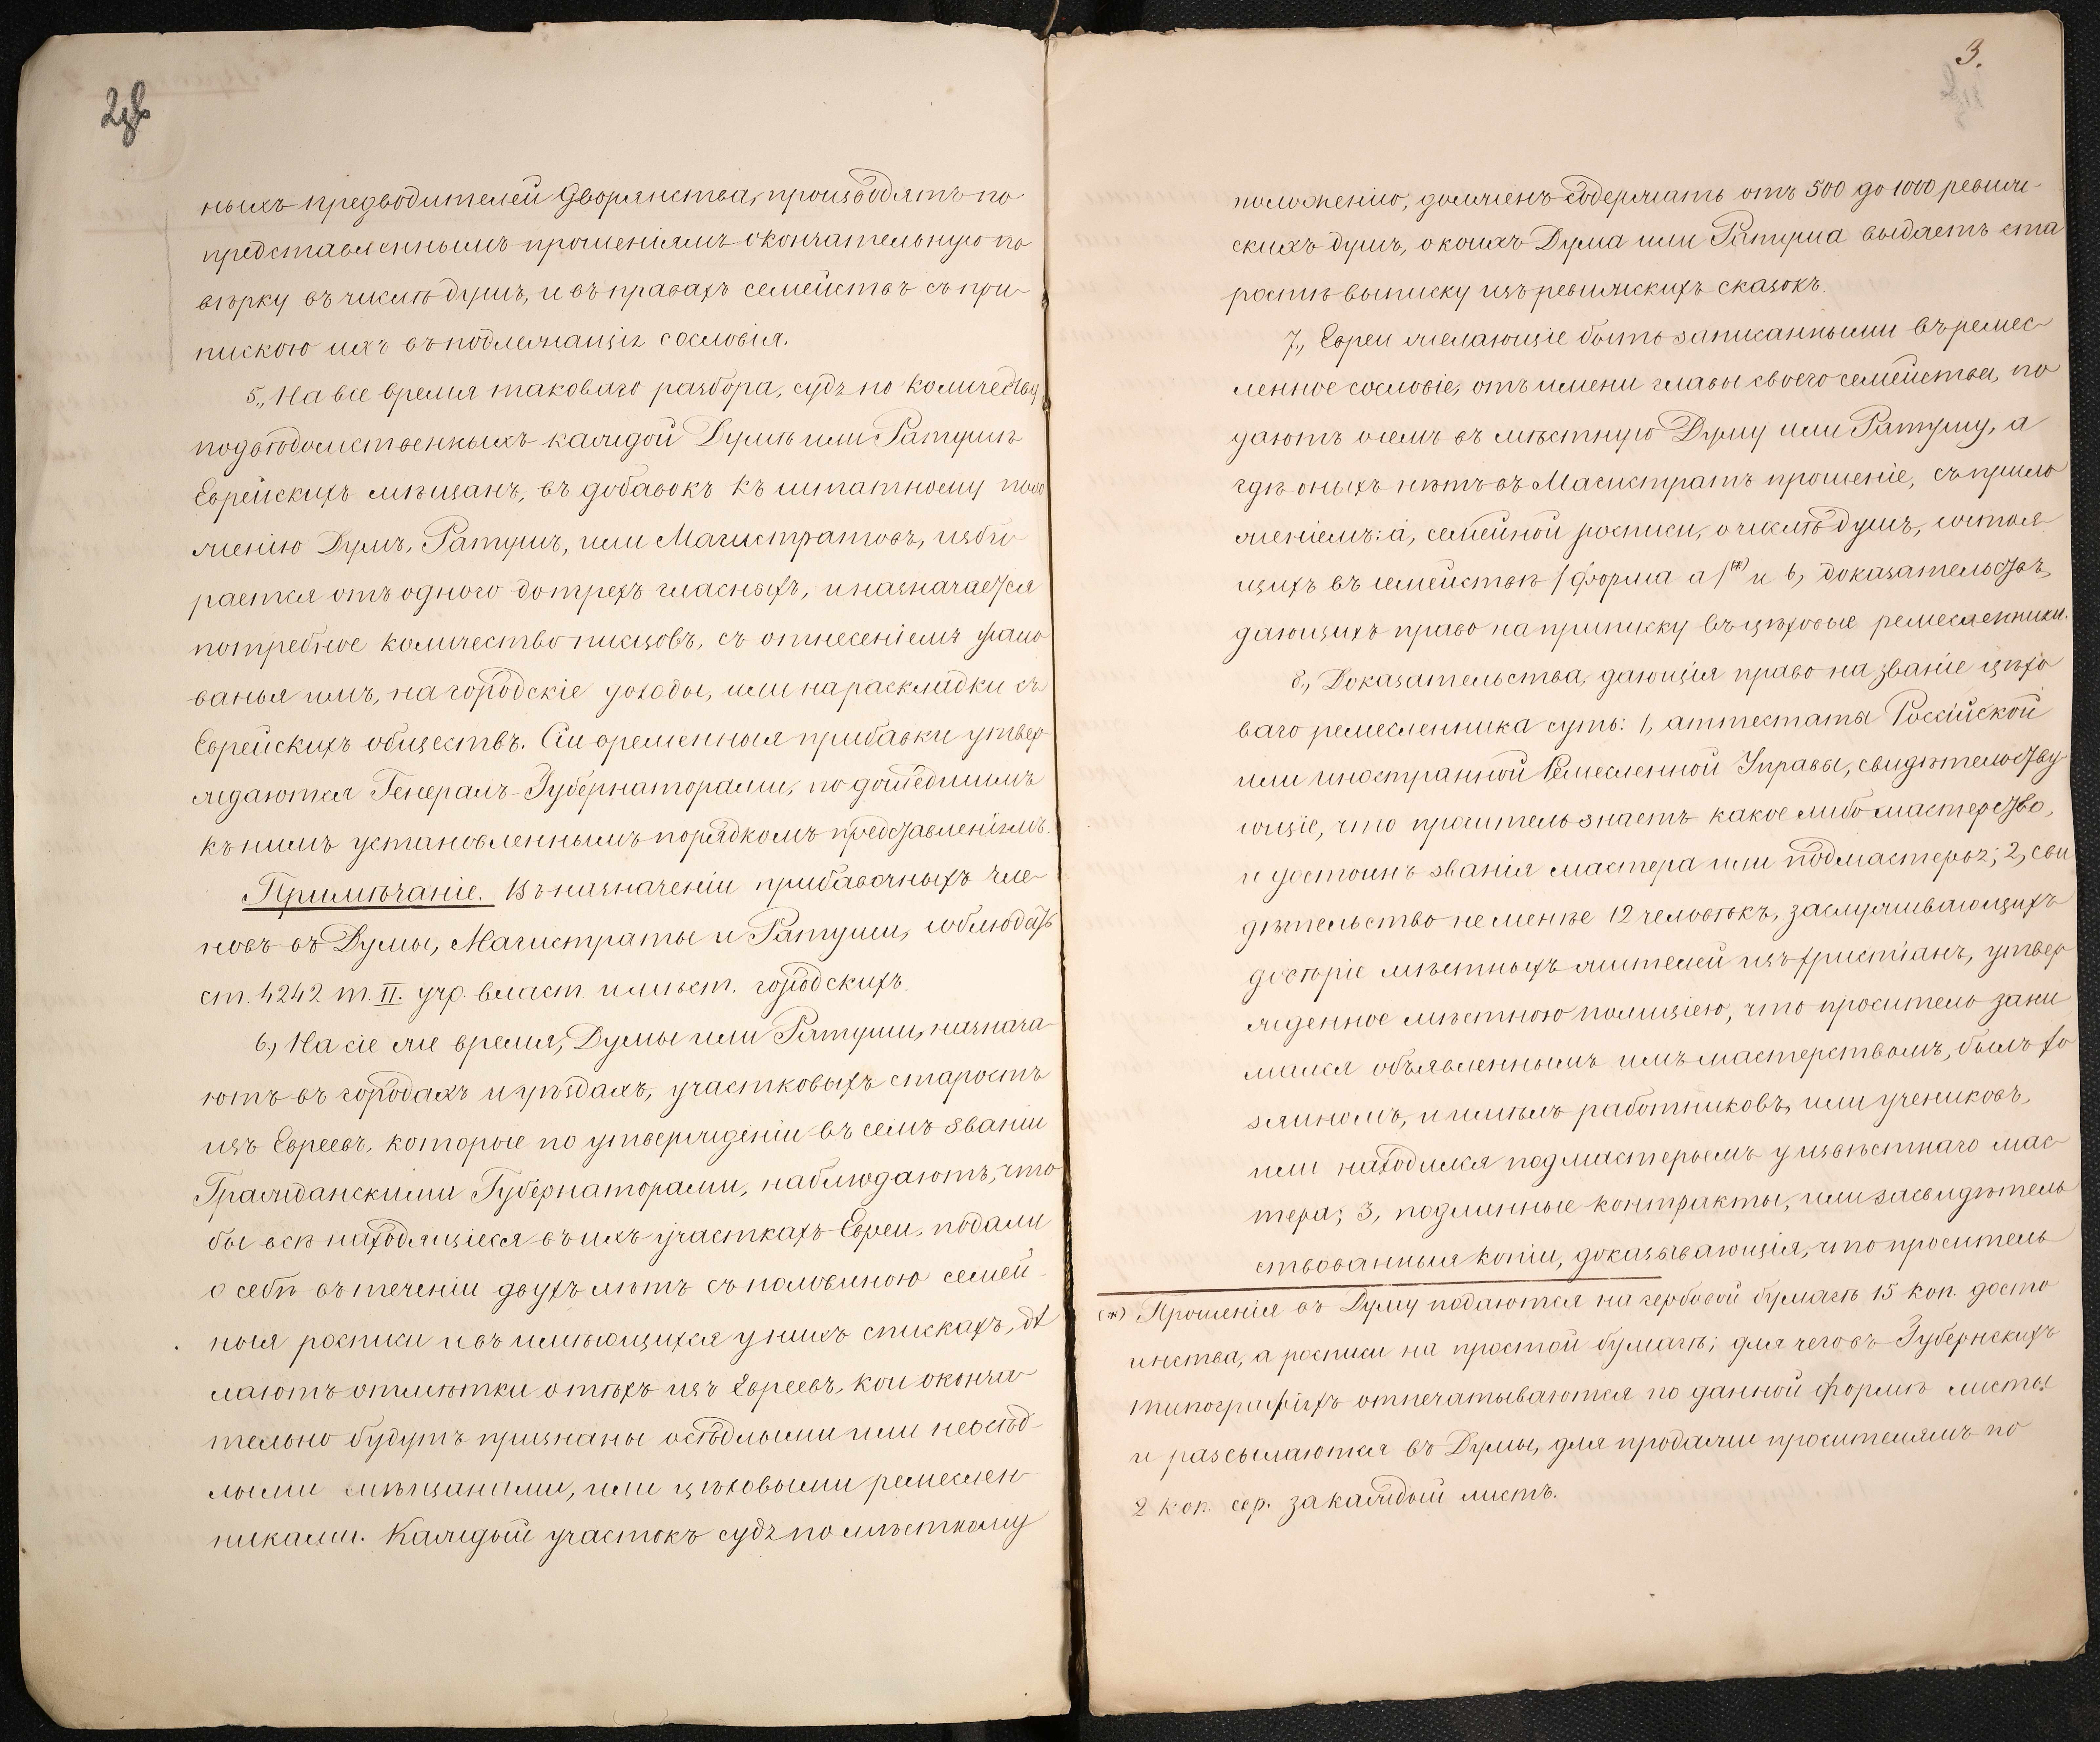 2об
ныхъ предводителей Дворянства, производятъ по
представленнымъ прошеніямъ окончательную по
вѣрку въ числѣ душъ, и въ правахъ семействъ съ при
пискою ихъ въ подлежащія сословія.
5., На все время таковаго разбора, судя по количеству
подвѣдомственныхъ каждой Думѣ или Ратушѣ
Еврейскихъ мѣщанъ, въ добавокъ къ штатному поло
женію Думъ, Ратушъ, или Магистратовъ, изби
рается отъ одного до трехъ гласныхъ, и назначается
потребное количество писцовъ, съ отнесеніемъ жало
ванья имъ, на городскіе доходы, или на раскладки съ
Еврейскихъ обществъ. Сіи временныя прибавки утвер
ждаются Генералъ-Губернаторами, по дошедшимъ
къ нимъ установленнымъ порядкомъ представленіямъ.
Примѣчаніе. Въ назначеніи прибавочныхъ чле
новъ въ Думы, Магистраты и Ратуши, соблюдать
ст. 4242 т. II. учр. власт. и мѣст. городскихъ.
6., На сіе же время, Думы или Ратуши, назнача
ютъ въ городахъ и уѣздахъ, участковыхъ старостъ
изъ Евреевъ, которые по утвержденіи въ семъ званіи
Гражданскими Губернаторами, наблюдаютъ, что
бы всѣ находящіеся въ ихъ участкахъ Евреи, подали
о себѣ въ теченіи двухъ лѣтъ съ половиною семей
ныя росписи и въ имѣющихся у нихъ спискахъ, дѣ
лаютъ отмѣтки о тѣхъ изъ Евреевъ, кои оконча
тельно будутъ признаны осѣдлыми или неосѣд
лыми мѣщанами, или цѣховыми ремеслен
никами. Каждый участокъ судя по мѣстному
3.
положенію, долженъ содержать отъ 500 до 1000 ревиж-
скихъ душъ, о коихъ Дума или Ратуша выдаетъ ста
ростѣ выписку изъ ревижскихъ сказокъ.
7., Евреи желающіе быть записанными въ ремес
ленное сословіе, отъ имени главы своего семейства, по
даютъ о семъ въ мѣстную Думу или Ратушу, а
гдѣ оныхъ нѣтъ въ Магистратъ прошеніе, съ прило
женіемъ: а, семейной росписи, о числѣ душъ, состоя
щихъ въ семействѣ /форма а/(*) и б, доказательствъ,
дающихъ право на приписку въ цѣховые ремесленники.
8., Доказательства, дающія право на званіе цѣхо
ваго ремесленника суть: 1, аттестаты Россійской
или иностранной Ремесленной Управы, свидѣтельству
ющіе, что проситель знаетъ какое либо мастерство,
и достоинъ званія мастера или подмастерья; 2, сви
дѣтельство не менѣе 12 человѣкъ, заслуживающихъ
довѣріе мѣстныхъ жителей изъ христіанъ, утвер
жденное мѣстною полиціею, что проситель зани
мался объявленнымъ имъ мастерствомъ, былъ хо
зяиномъ, и имѣлъ работниковъ, или учениковъ,
или находился подмастерьемъ у извѣстнаго мас
тера; 3, подлинные контракты, или засвидѣтель
ствованныя копіи, доказывающія, что проситель
(*) Прошенія въ Думу подаются на гербовой бумагѣ 15 коп. досто
инства, а росписи на простой бумагѣ; для чего въ Губернскихъ
типографіяхъ отпечатываются по данной формѣ листы
и разсылаются въ Думы, для продажи просителямъ по
2 коп. сер. за каждый листъ.